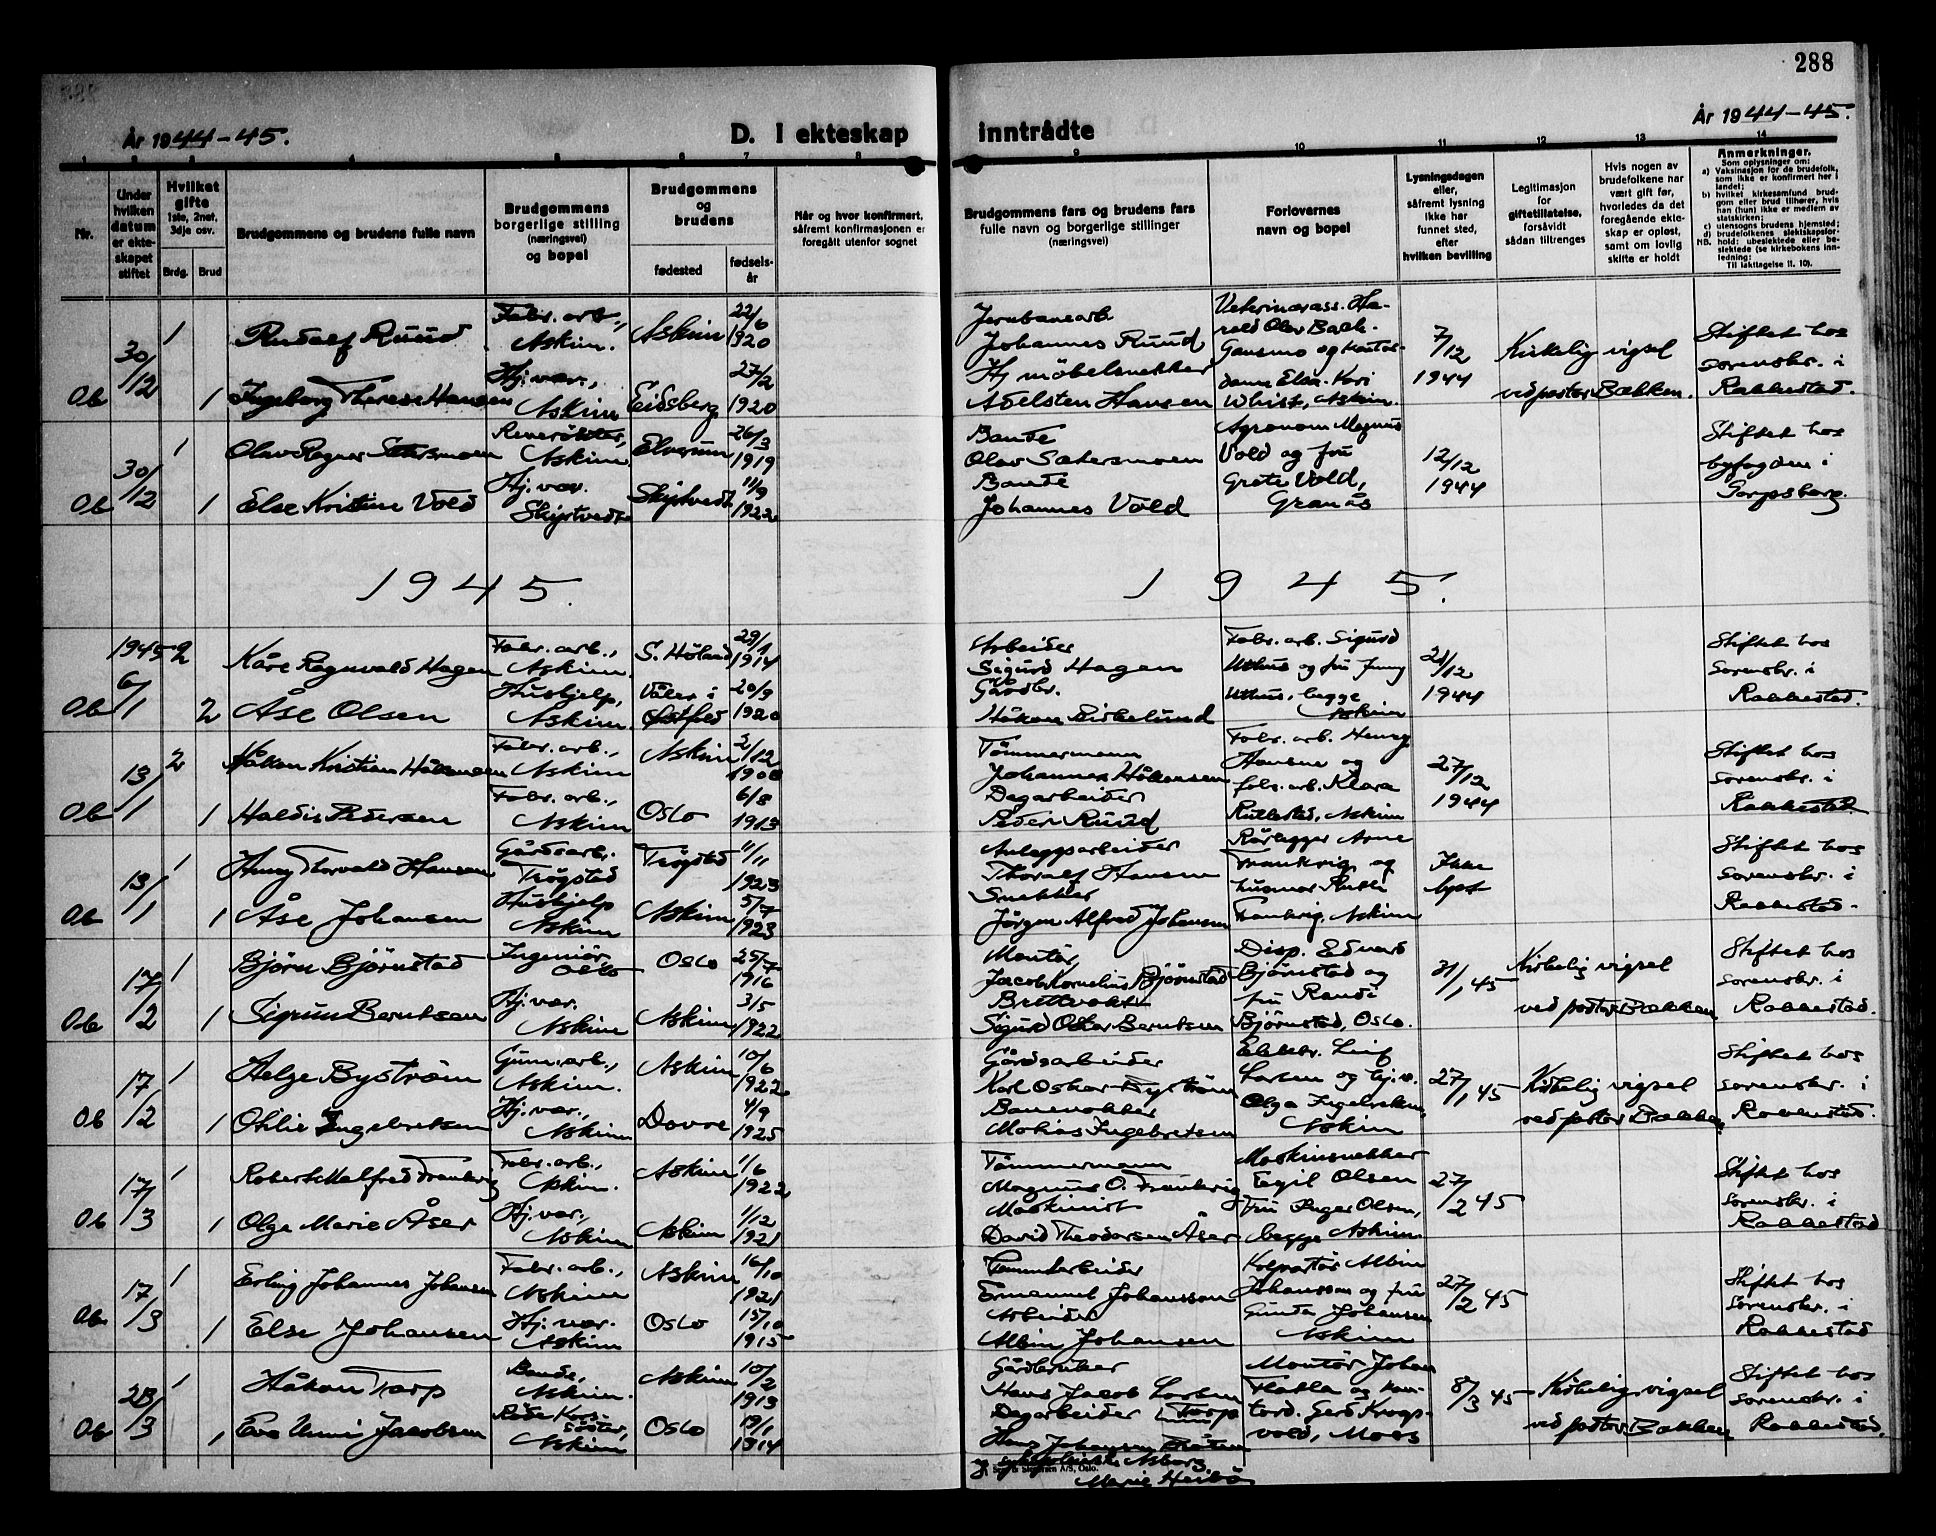 288
År 1944-45.
D. I ekteskap inntrådte
År 1944-45.
1 2 3 4 5 6 7 8 9 10 11 12 13 14
Nr.
Under hvilken datum er ekteskapet stiftet
Hvilket gifte 1ste, 2net, 3dje osv.
Brdg. Brud
Brudgommens og brudens fulle navn
Brudgommens borgerlige stilling (næringsvei) og bopel
Brudgommens og brudens
fødested
fødselsår
Når og hvor konfirmert, såfremt konfirmasjonen er foregått utenfor sognet
Brudgommens fars og brudens fars fulle navn og borgerlige stillinger (næringsvei)
Forlovernes navn og bopel
Lysningsdagen eller, såfremt lysning ikke har funnet sted, efter hvilken bevilling
Legitimasjon for giftetillatelse, forsåvidt sådan tiltrenges
Hvis nogen av brudefolkene har vært gift før, hvorledes da det foregående ekteskap er opløst, samt om lovlig skifte er holdt
Anmerkninger.
Som oplysninger om:
a) Vaksinasjon for de brudefolk, som ikke er konfirmert her i landet;
b) hvilket kirkesamfund brudgom eller brud tilhører, hvis han (hun) ikke er medlem av statskirken;
c) utensogns brudens hjemsted;
d) brudefolkenes slektskapsforhold: ubeslektede eller beslektede (se kirkebokens innledning:
NB. Til iakttagelse II. 10).
30/12 1 Rudolf Ruud Fabr. arb., Askim. Askim 22/6 1920 Jernbanearb. Johannes Ruud
Ob 1 Ingeborg Therese Hansen Hj. vær., Askim Eidsberg 27/2 1920 Hj møbelsnekker Adelsten Hansen
Veterinærass. Harald Olav Bach. Gausmo og kontordame Elsa. Kari Whist, Askim.
7/12 1944 Kirkelig vigsel ved pastor Bækken. Stiftet hos sorenskr. i Rakkestad.
30/12 1 Olav Ragnar Sætersmoen Askim Elverum 26/3 1919 Bonde Olav Sætersmoen
Ob 1 Else Kristine Vold Hj. vær. Skiptvedt Skiptvedt 11/9 1922 Bonde Johannes Vold
Agronom Magnus Vold og fru Grete Vold, Granås
12/12 1944 Stiftet hos byfogden i Sarpsborg.
1945. 1945.
1945 6/1 2 Kåre Ragnvald Hagen Fabr. arb., Askim. S. Høland 29/1 1914 Arbeider Sigurd Hagen
Ob 2 Åse Olsen Hushjelp, Askim Våler i Østfold 20/9 1920 Gårdbr. Håkon Birkelund
Fabr. arb. Sigurd Uthus og fru Jenny Uthus, begge Askim
21/12 1944 Stiftet hos Sorenskr. i Rakkestad.
13/1 2 Håkon Kristian Håkensen Fabr. arb., Askim Askim 2/12 1908 Tømmermann Johannes Håkensen
Ob 1 Haldis Pedersen Fabr. arb., Askim Oslo 6/8 1913 Dagarbeider Peder Ruud
Fabr. arb. Henry og fabr. arb. Klara Rullestad, Askim
27/12 1944 Stiftet hos sorenskr. i Rakkestad
13/1 1 Henry Thorvald Hansen Gårdsarb. Trøgstad Trøgstad 11/11 1923 Anleggsarbeider Thoralf Hansen
Ob 1 Åse Johansen Hushjelp Askim Askim 5/7 1923 Snekker Jørgen Alfred Johansen
Rørlegger Arne Frankrig og husmor Ruth Frankrig, Askim
Ikke lyst Stiftet hos sorenskr. i Rakkestad.
17/2 1 Bjørn Bjørnstad Ingeniør Oslo Oslo 25/7 1916 Montør, Jacob Kornelius Bjørnstad
Ob 1 Sigrun Berntsen Hj. vær. Askim Askim 3/5 1922 Brettvokter Sigurd Oskar Berntsen
Disp. Edvard Bjørnstad og fru Randi Bjørnstad, Oslo.
31/1 45 Kirkelig vigsel ved pastor Bækken. Stiftet hos sorenskr. i Rakkestad.
17/2 1 Helge Byström Gum. arb., Askim. Askim 10/6 1922 Gårdsarbeider Karl Oskar Byström
Ob 1 Othlie Ingebretsen Hj. vær., Askim Dovre 4/9 1925 Banevokter Mathias Ingebretsen
Elektr. Leif Larsen og hj. v. Olga Ingebretsen Askim
27/1 45 Kirkelig vigsel ved pastor Bækken. Stiftet hos sorenskr. i Rakkestad.
17/3 1 Robert Malfred Frankrig Fabr. arb., Askim. Askim 1/6 1922 Tømmermann Magnus O. Frankrig
Ob 1 Olga Marie Åser Hj. vær., Askim Askim 1/12 1921 Maskinist David Theodorsen Åser
Maskinsnekker Egil Olsen Fru Inger Olsen, begge Askim
27/2 45 Stiftet hos sorenskr. i Rakkestad
17/3 1 Erling Johannes Johansen Fabr. arb., Askim Askim 16/10 1921 Emanuel Johansson
Ob 1 Else Johansen Hj. vær. Askim Oslo 15/10 1915 Arbeider Albin Johansen
Kolportør Albin Johansson og fru Gunda Johansen Askim
27/2 45 Stiftet hos sorenskr. i Rakkestad
23/3 1 Håkon Torp Bonde, Askim. Askim 10/2 1913 Gårdbruker Hans Jacob Larsen Torp
Ob 1 Eva Unni Jacobsen Røde Kors søster, Askim Oslo 19/1 1914 Dagarbeider Hans Johansen
Marie Heibø
Montør Johan Flatla og kontord. Gerd Krogsvold, Moss
8/3 45 Kirkelig vigsel ved pastor Bækken Stiftet hos sorenskr. i Rakkestad.
A/S, Oslo.